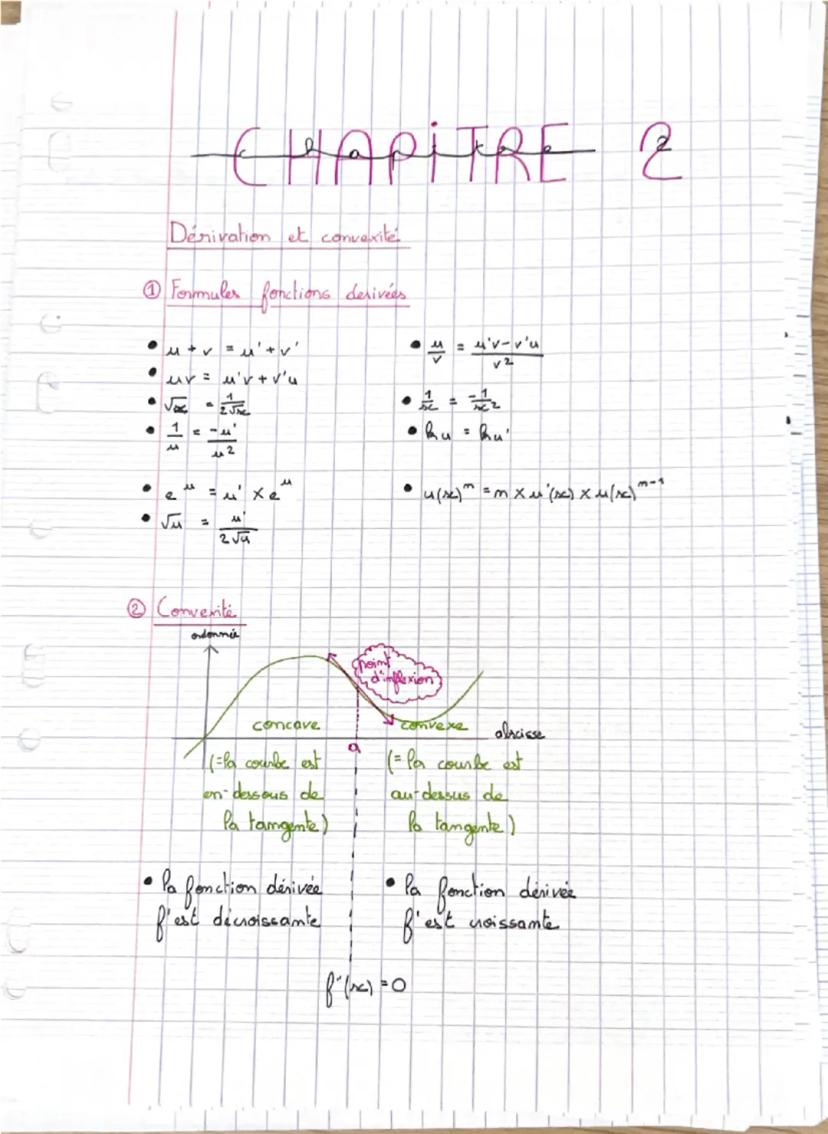 CHAPITRE 2
Dérivation et convexité
① Formules fonctions derivées
• u + v = u' + v'
• u/v = (u'v - v'u)/v²
• uv = u'v + v'u
• √x = 1/(2√x)
• 1/x = -1/x²
• 1/u = -u'/u²
• ku = ku'
• e^u = u' × e^u
• u(x)^n = n × u'(x) × u(x)^(n-1)
• √u = u'/(2√u)
② Convexité
ordonnée
point
d'inflexion
concave
convexe
abscisse
a
(= la courbe est
en-dessous de
la tangente)
(= la courbe est
au-dessus de
la tangente)
• la fonction dérivée
f' est décroissante
• la fonction dérivée
f' est croissante
f''(x) = 0